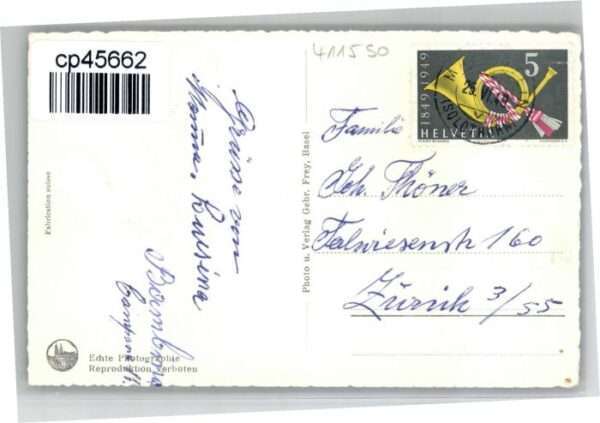 cp45662
411550
1849-1949
5
HELVETIA
SOLOTHURN
Familie
Joh. Thöner
Talwiesenstr 160
Zürich 3/55
Grüsse von
Mama, Luisina
Photo u. Verlag Gebr. Frey, Basel
Fabrication suisse
Echte Photographie
Reproduktion verboten